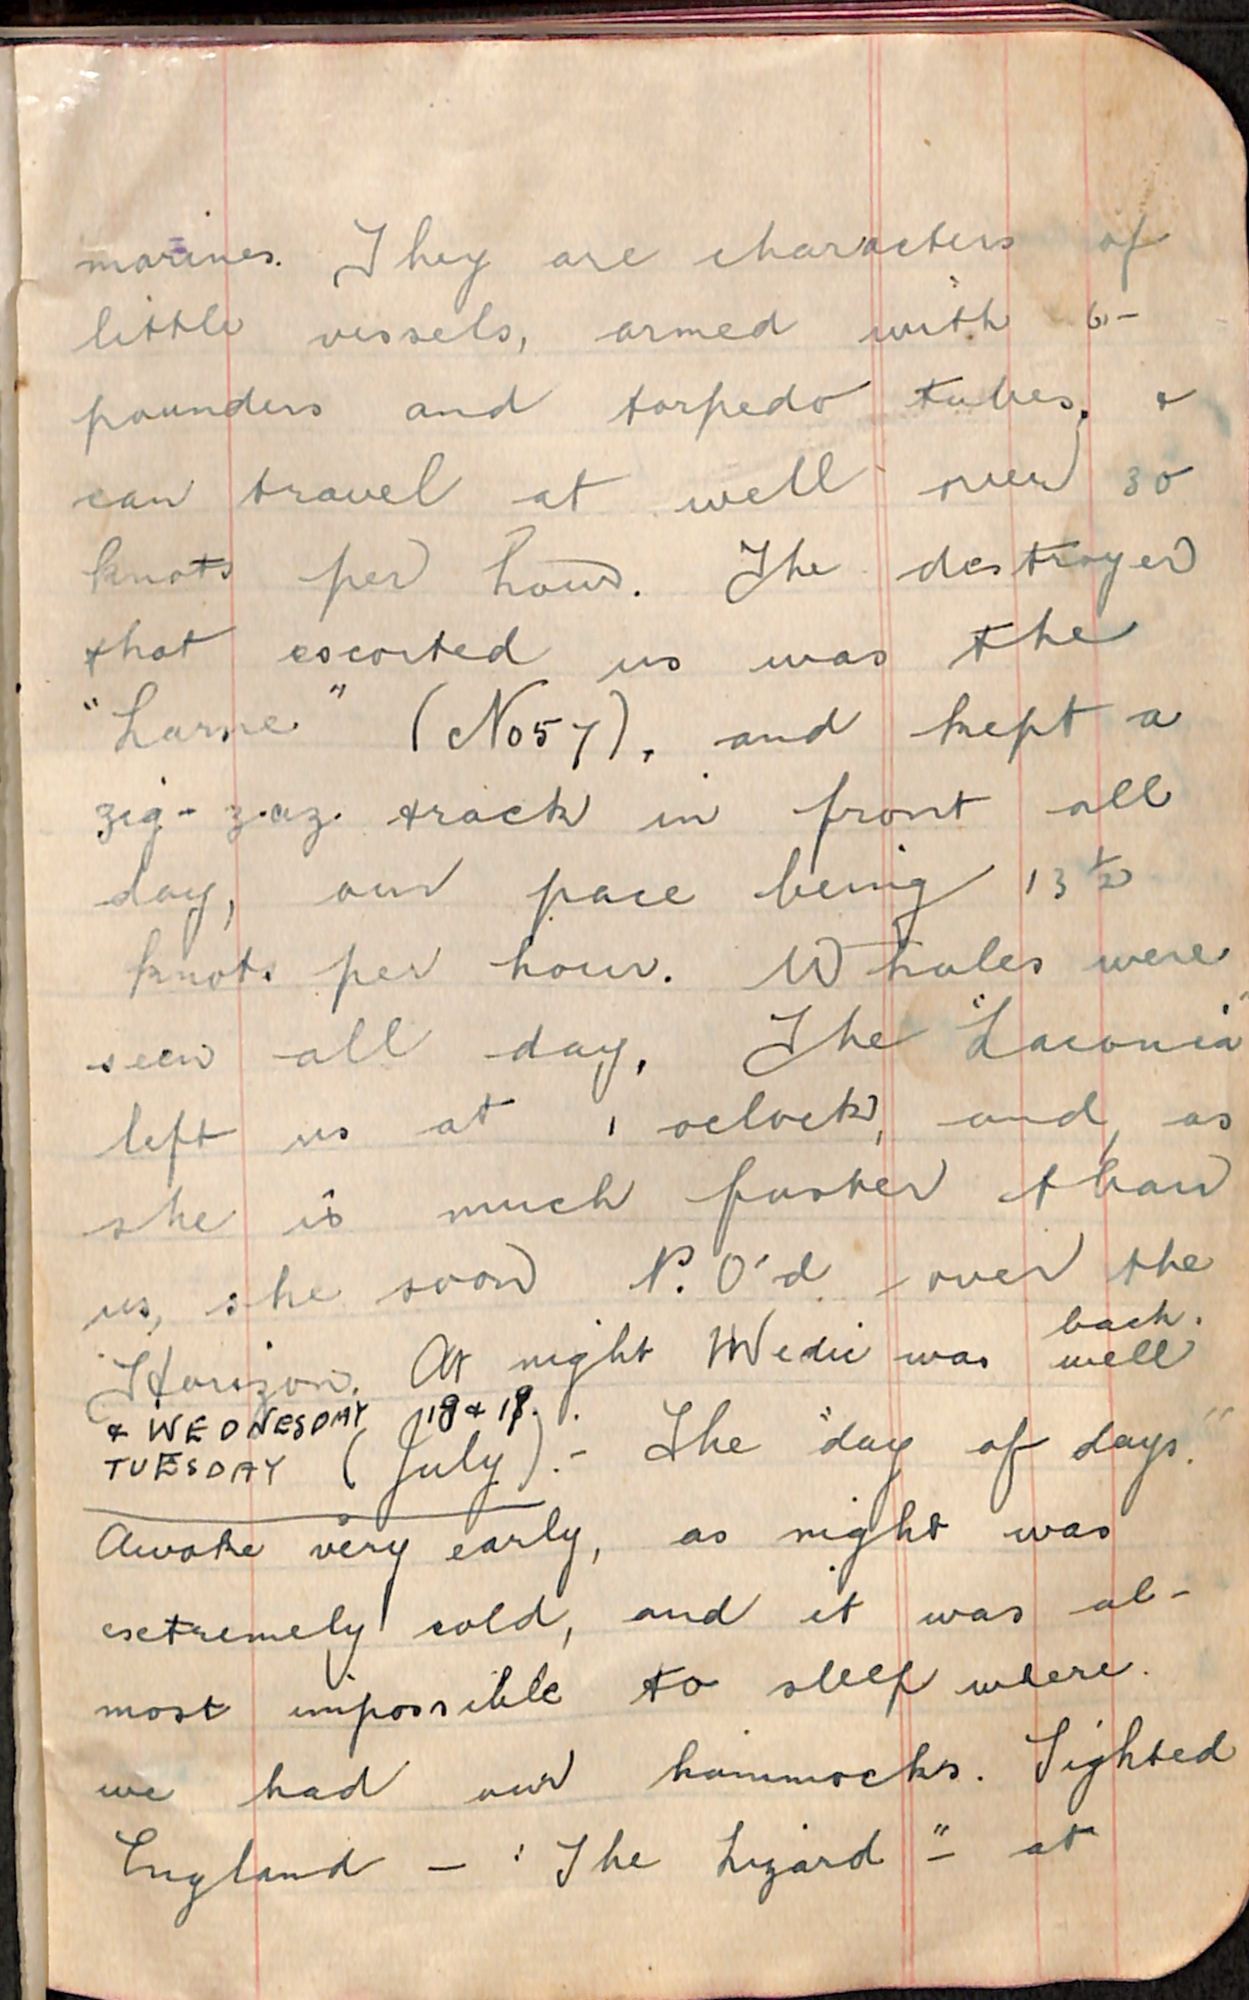 marines. They are characters of
little vessels, armed with 6-
pounders and torpedo tubes, &
can travel at well over 30
knots per hour. The destroyer
that escorted us was the
"Larne" (No 57), and kept a
zig-zag track in front all
day, our pace being 13 1/2
knots per hour. Whales were
seen all day. The "Laconia"
left us at 1 oclock, and, as
she is much faster than
us, she soon P. O'd over the
Horizon. At night Medic was well
back.
& WEDNESDAY
TUESDAY (July 18 & 19.) :- The "day of days."
Awoke very early, as night was
extremely cold, and it was al-
most impossible to sleep where
we had our hammocks. Sighted
England - "The Lizard" - at